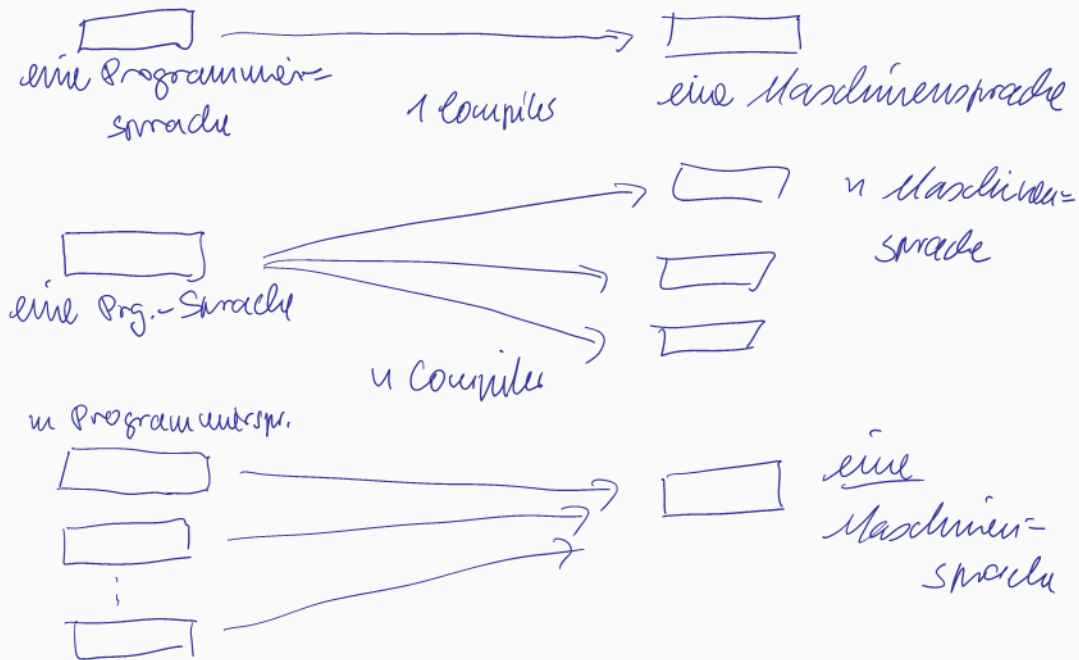 eine Programmier=
sprache
1 Compiler
eine Maschinensprache
eine Prg.-Sprache
n Maschinen=
sprache
n Compiler
m Programmierspr.
eine
Maschinen-
sprache